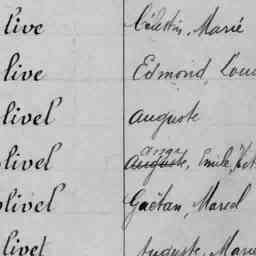 live Célestin, Marie
live Edmond, Loui
livel Auguste
ange
livel Auguste, Emile,
livel Gaëtan, Marcel
livet Auguste, Marie